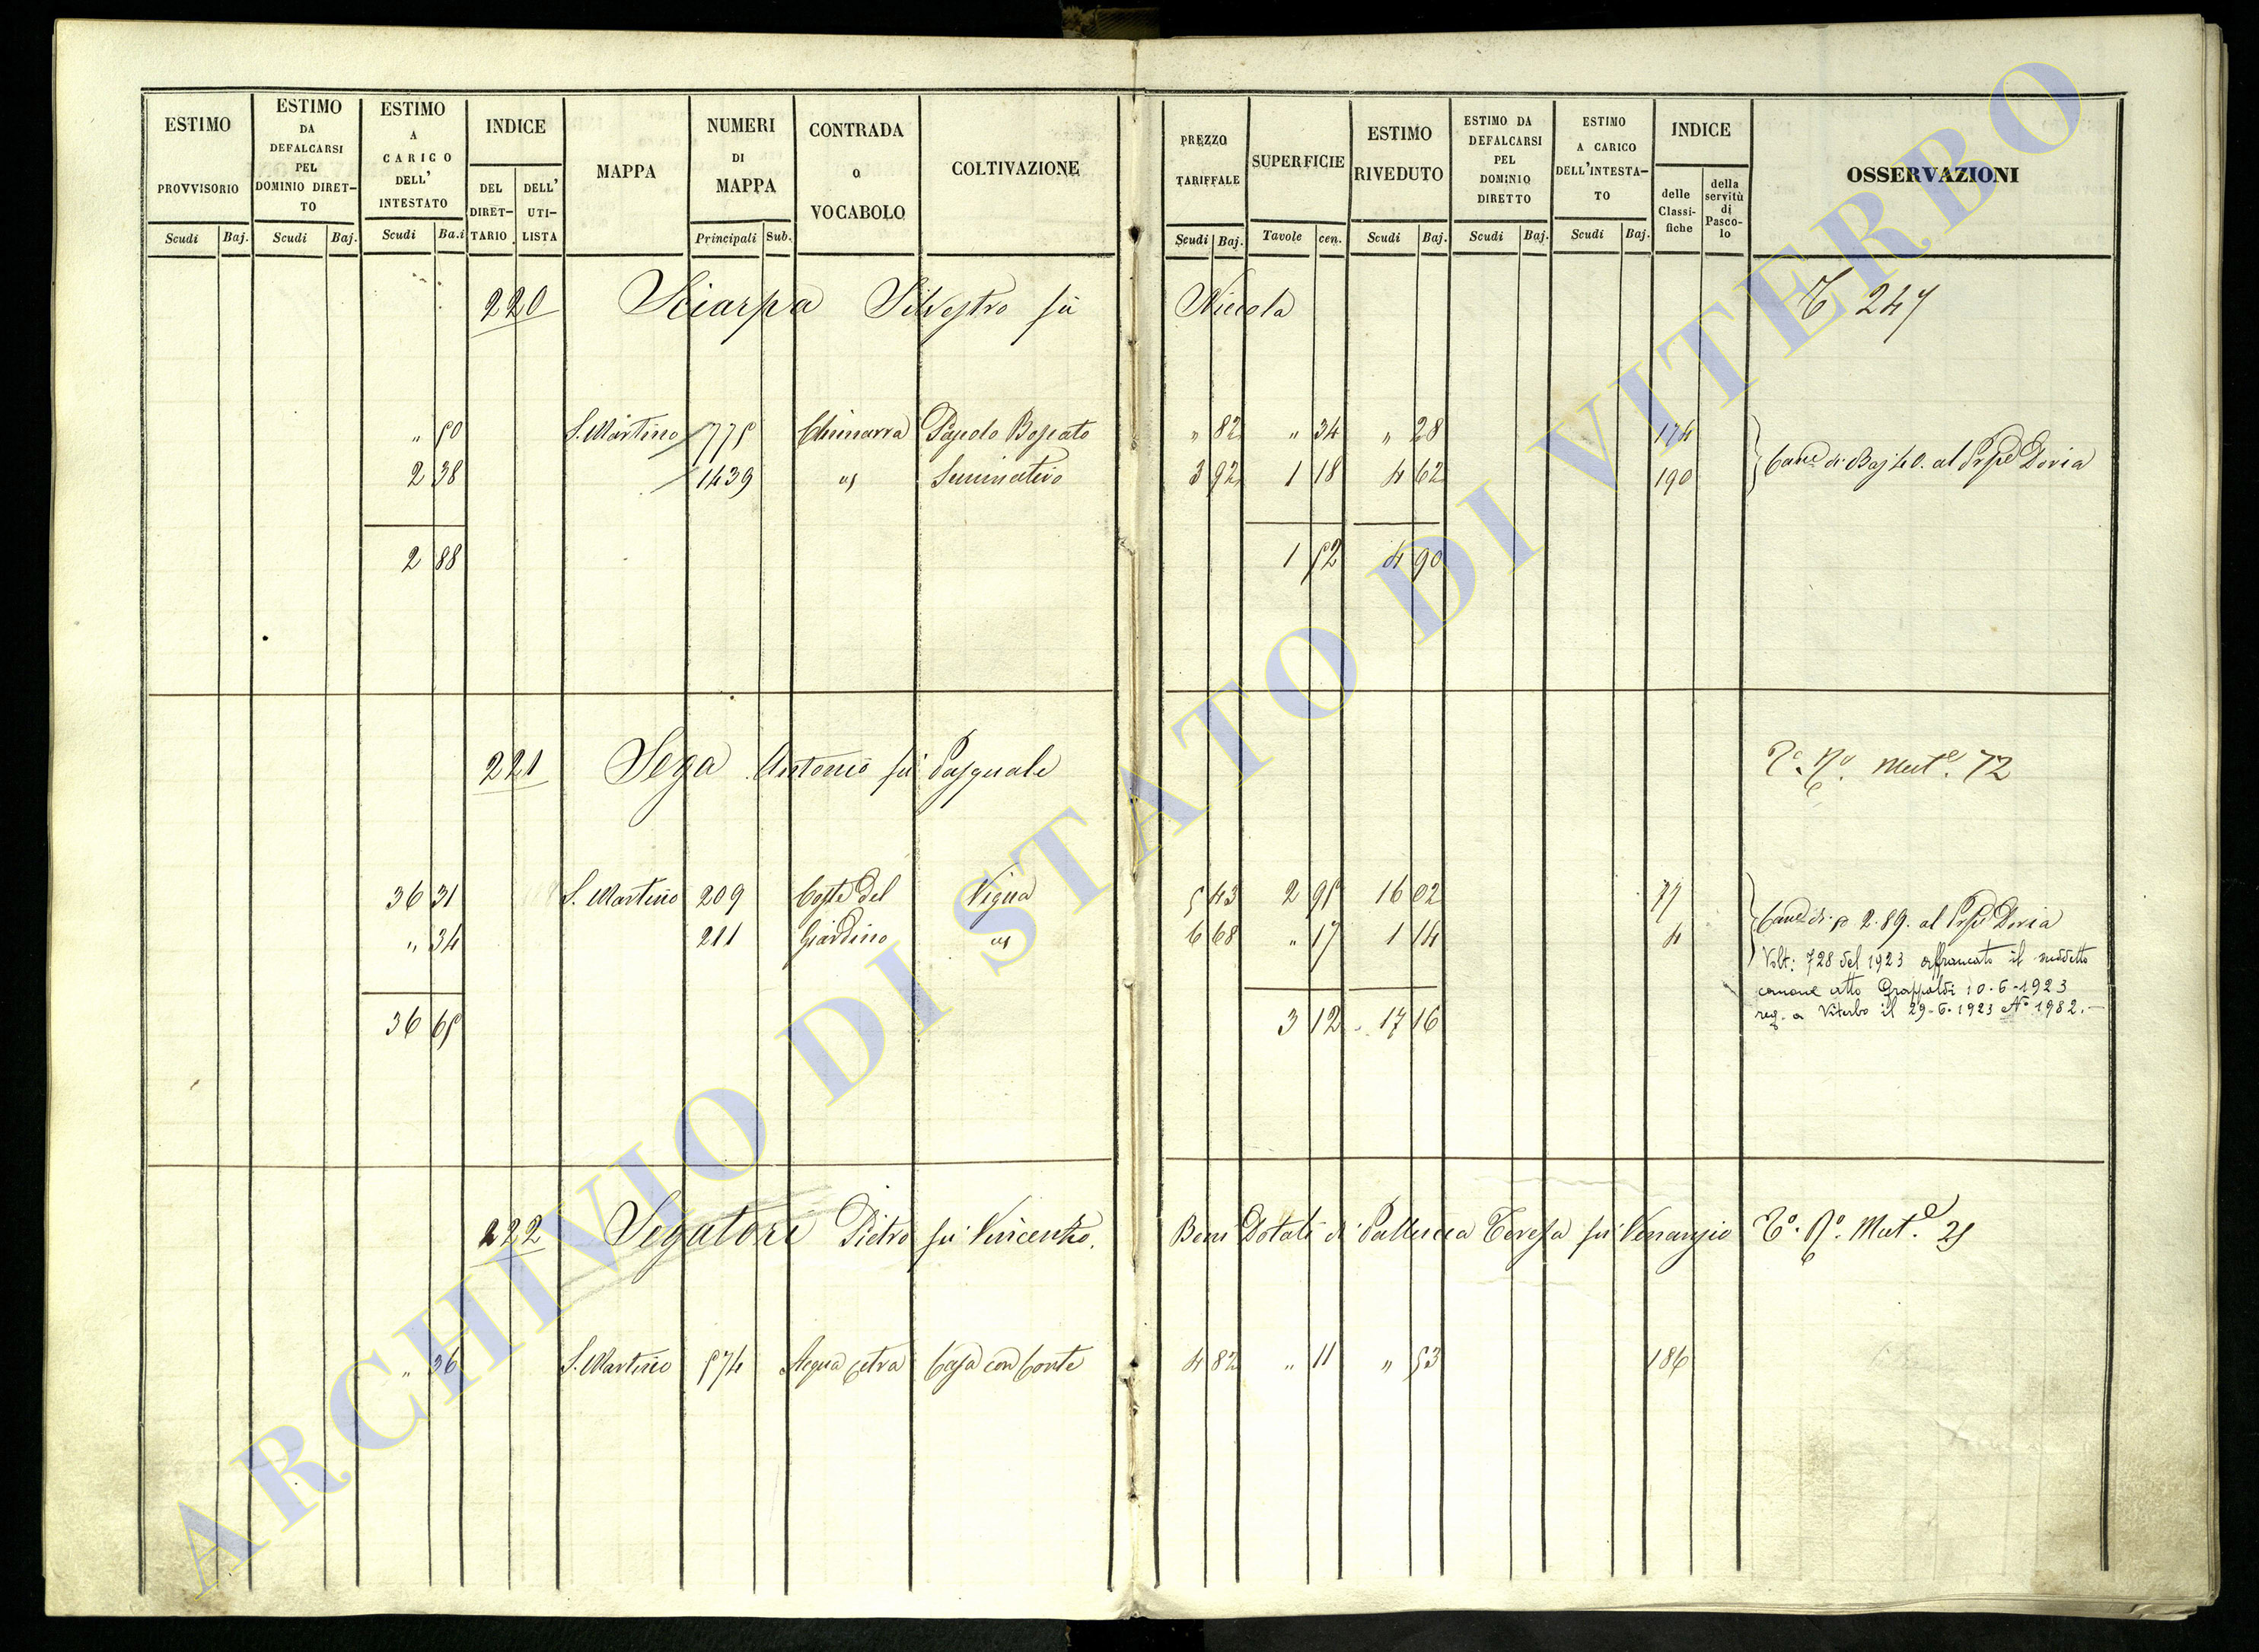 ESTIMO PROVVISORIO
ESTIMO DA DEFALCARSI PEL DOMINIO DIRET-TO
ESTIMO A CARICO DELL' INTESTATO
INDICE
DEL DIRET-TARIO
DELL' UTI-LISTA
MAPPA
NUMERI DI MAPPA
CONTRADA O VOCABOLO
COLTIVAZIONE
PREZZO TARIFFALE
SUPERFICIE
ESTIMO RIVEDUTO
ESTIMO DA DEFALCARSI PEL DOMINIO DIRETTO
ESTIMO A CARICO DELL'INTESTA-TO
INDICE
delle Classi-fiche
della servitù di Pasco-lo
OSSERVAZIONI
Scudi Baj. Scudi Baj. Scudi Ba.i Principali Sub. Scudi Baj. Tavole cen. Scudi Baj. Scudi Baj. Scudi Baj.
220 Sciarpa Silvestro fù Niccola 247
" 50 S. Martino 775 Chinarra Pascolo Boscato " 82 " 34 " 28 174
2 38 1439 " Seminativo 3 92 1 18 4 62 190
Cane di Baj 40. al Prpe Doria
2 88 1 52 4 90
221 Sega Antonio fù Pasquale Mute. 72
36 31 S. Martino 209 Coste del Vigna 5 43 2 95 16 02 77
" 34 211 Giardino " 6 68 " 17 1 14 4
Cane di 2.89. al Prpe Doria
Volt: 728 del 1923 affrancato il suddetto
canone atto Grappoldi 10-6-1923
reg. a Viterbo il 29-6-1923 No 1982.-
36 65 3 12 17 16
222 Segatori Pietro fù Vincenzo. Beni Dotali di Pallucca Teresa fù Venanzio To. Ro. Muto. 25
" 36 S. Martino 574 Acqua Cetra Casa con Corte 4 82 " 11 " 53 186
ARCHIVIO DI STATO DI VITERBO